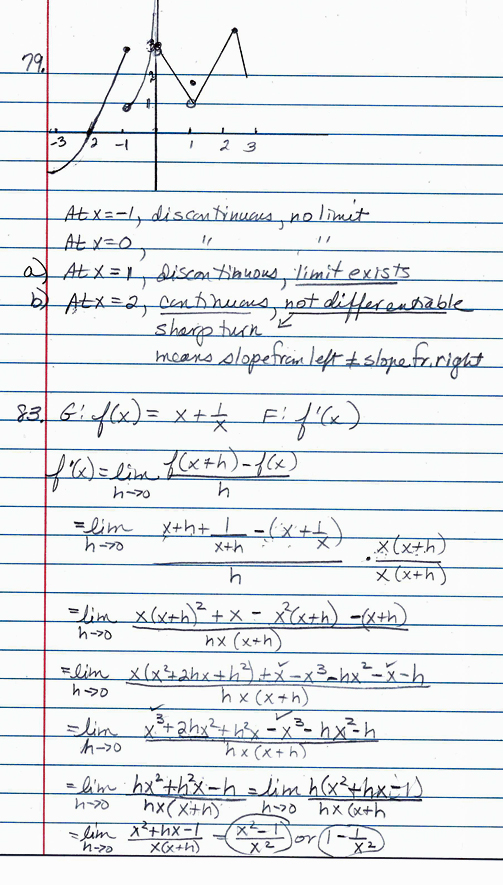 79.
3
2
1
-3 -2 -1 1 2 3
At x=-1, discontinuous, no limit
At x=0, " "
a) At x=1, discontinuous, limit exists
b) At x=2, continuous, not differentiable
sharp turn ↙
means slope from left ≠ slope fr. right
83. G: f(x) = x + 1/x F: f'(x)
f'(x) = lim h→0 (f(x+h) - f(x))/h
= lim h→0 (x+h+ 1/(x+h) - (x + 1/x))/h · x(x+h)/x(x+h)
= lim h→0 (x(x+h)² + x - x²(x+h) - (x+h))/(hx(x+h))
= lim h→0 (x(x²+2hx+h²) + x - x³ - hx² - x - h)/(hx(x+h))
= lim h→0 (x³ + 2hx² + h²x - x³ - hx² - h)/(hx(x+h))
= lim h→0 (hx² + h²x - h)/(hx(x+h)) = lim h→0 h(x² + hx - 1)/(hx(x+h
= lim h→0 (x² + hx - 1)/(x(x+h)) = (x² - 1)/x² or 1 - 1/x²